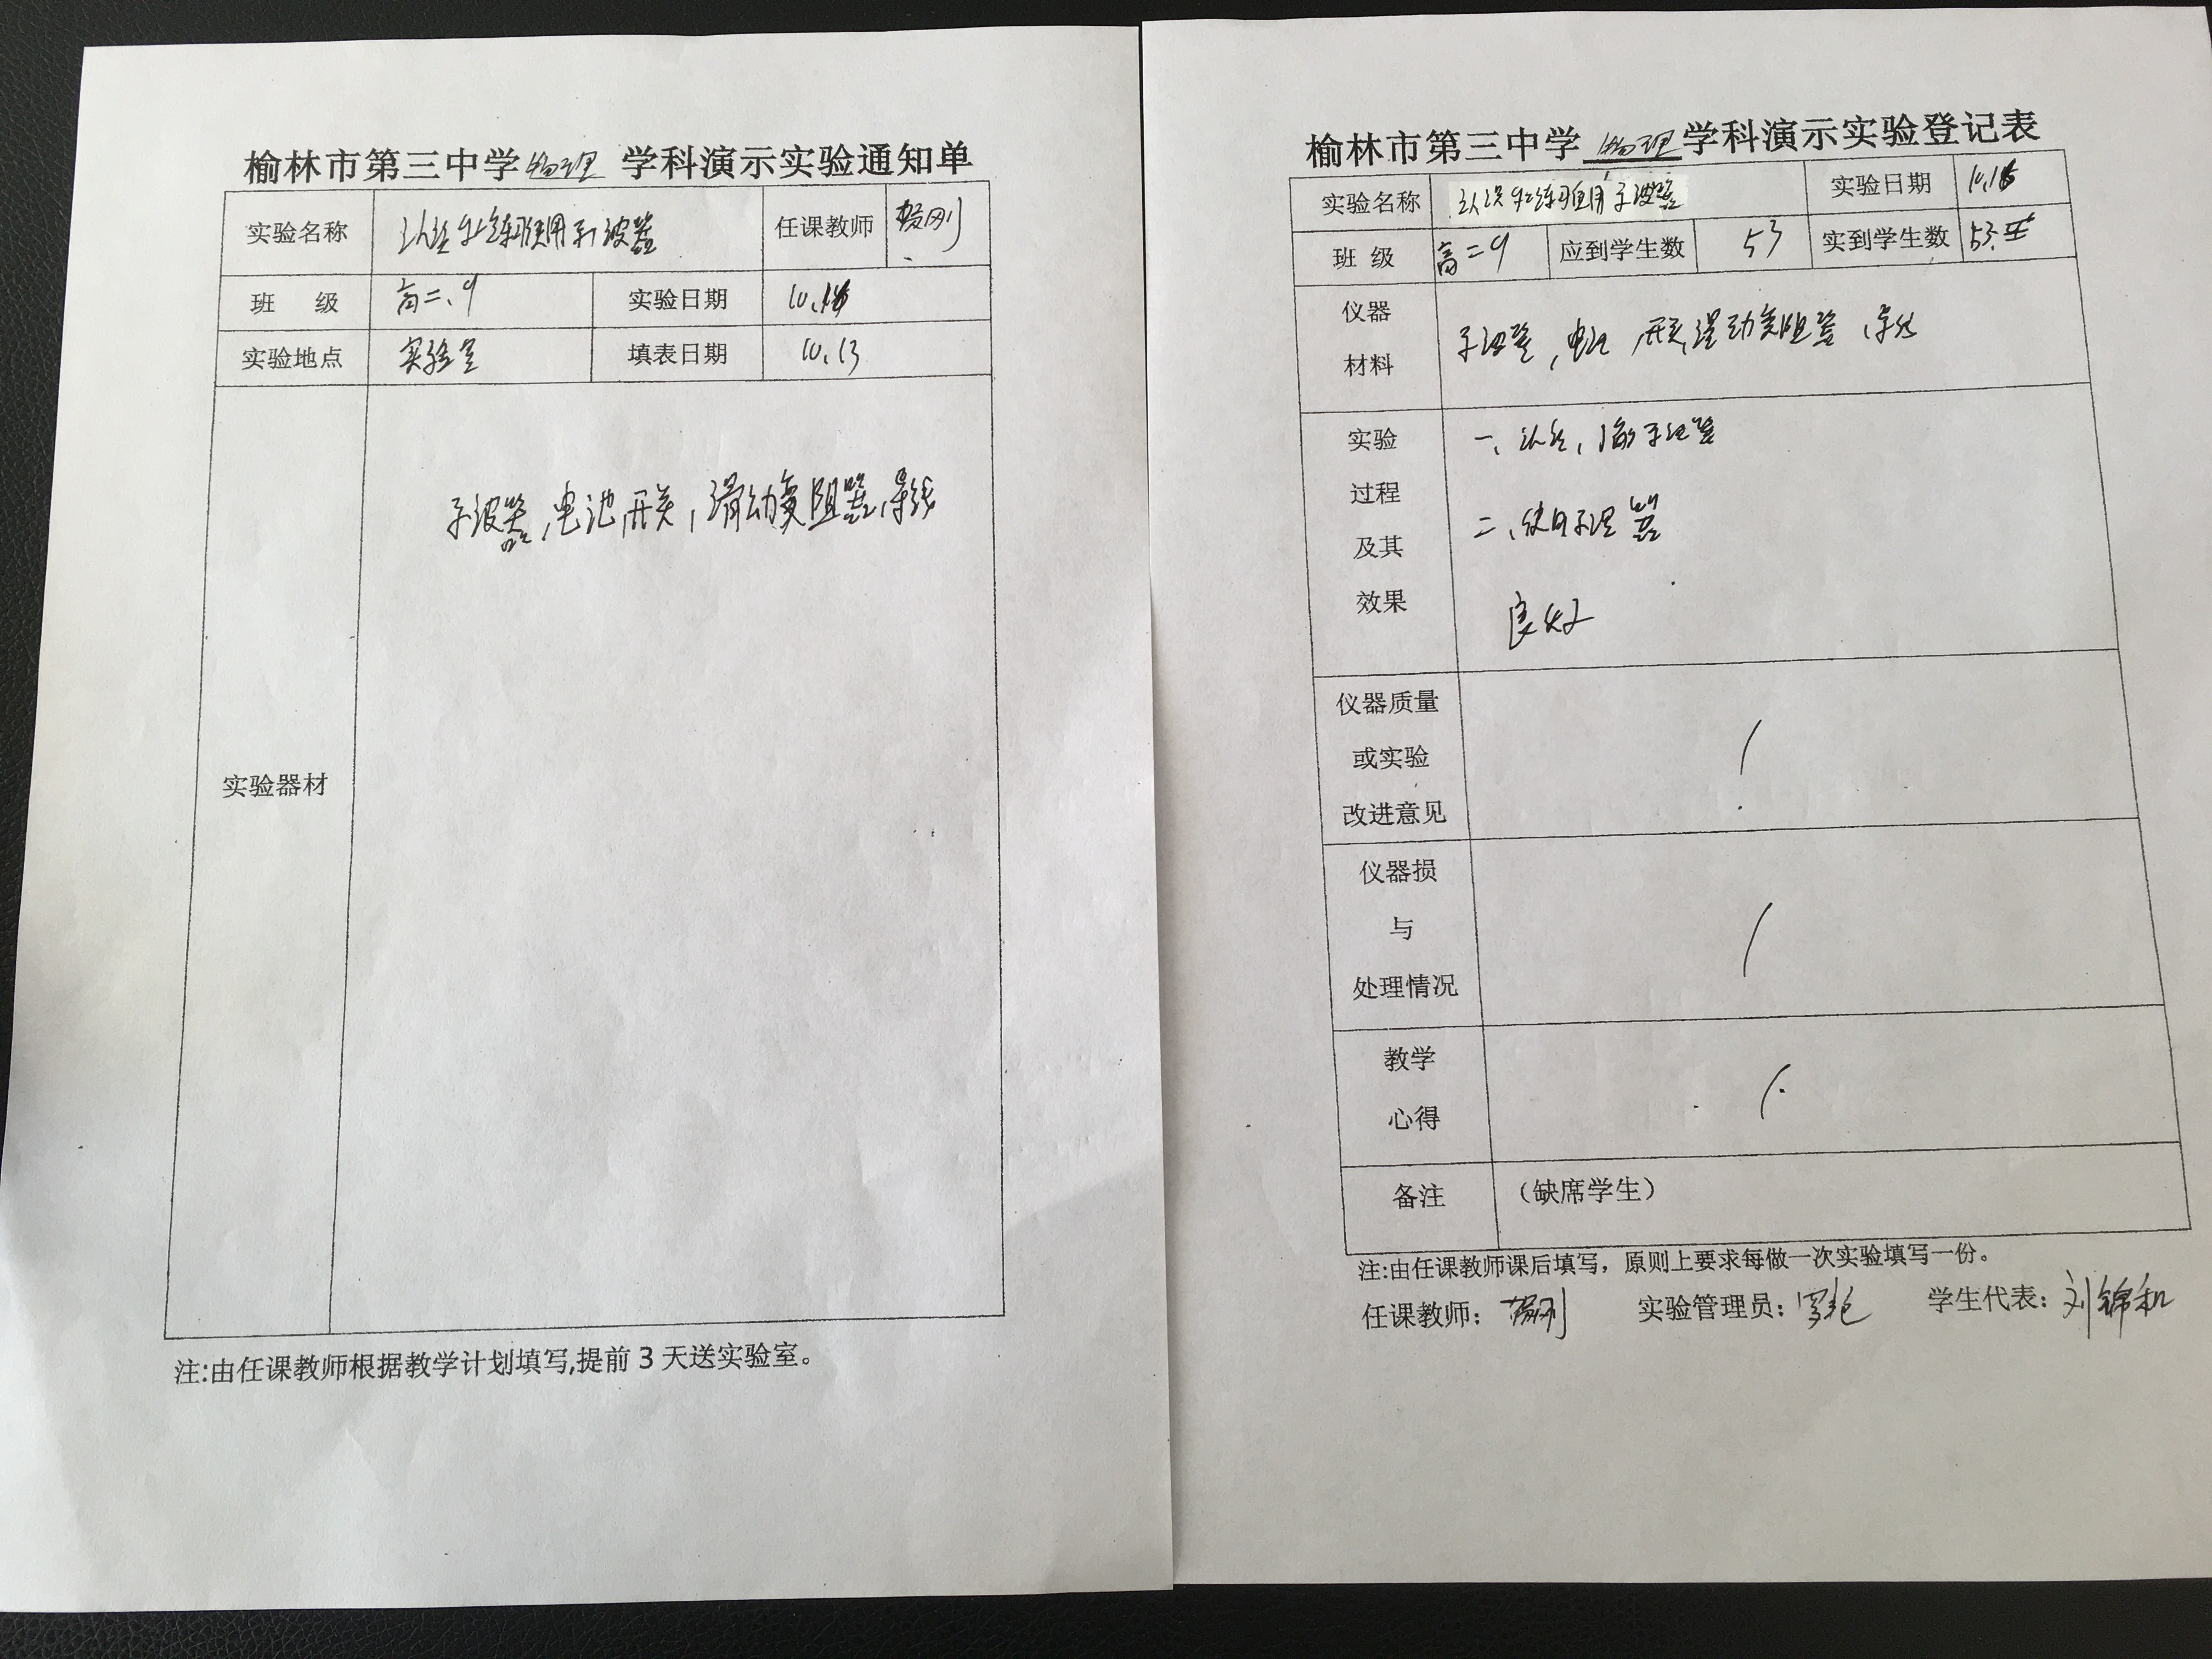 榆林市第三中学物理学科演示实验通知单
实验名称 认识并练习使用示波器 任课教师
班 级 高二、9 实验日期 10.16
实验地点 实验室 填表日期 10.13
实验器材 示波器,电池,开关,滑动变阻器,导线
注:由任课教师根据教学计划填写,提前3天送实验室。
榆林市第三中学物理学科演示实验登记表
实验名称 认识并练习使用示波器 实验日期 10.16
班 级 高二9 应到学生数 53 实到学生数 53
仪器
材料
示波器,电池,开关,滑动变阻器,导线
实验
过程
及其
效果
一、认识,
二、使用示波器
良好
仪器质量
或实验
改进意见
仪器损
与
处理情况
教学
心得
备注 (缺席学生)
注:由任课教师课后填写，原则上要求每做一次实验填写一份。
任课教师: 实验管理员: 学生代表:刘锦和